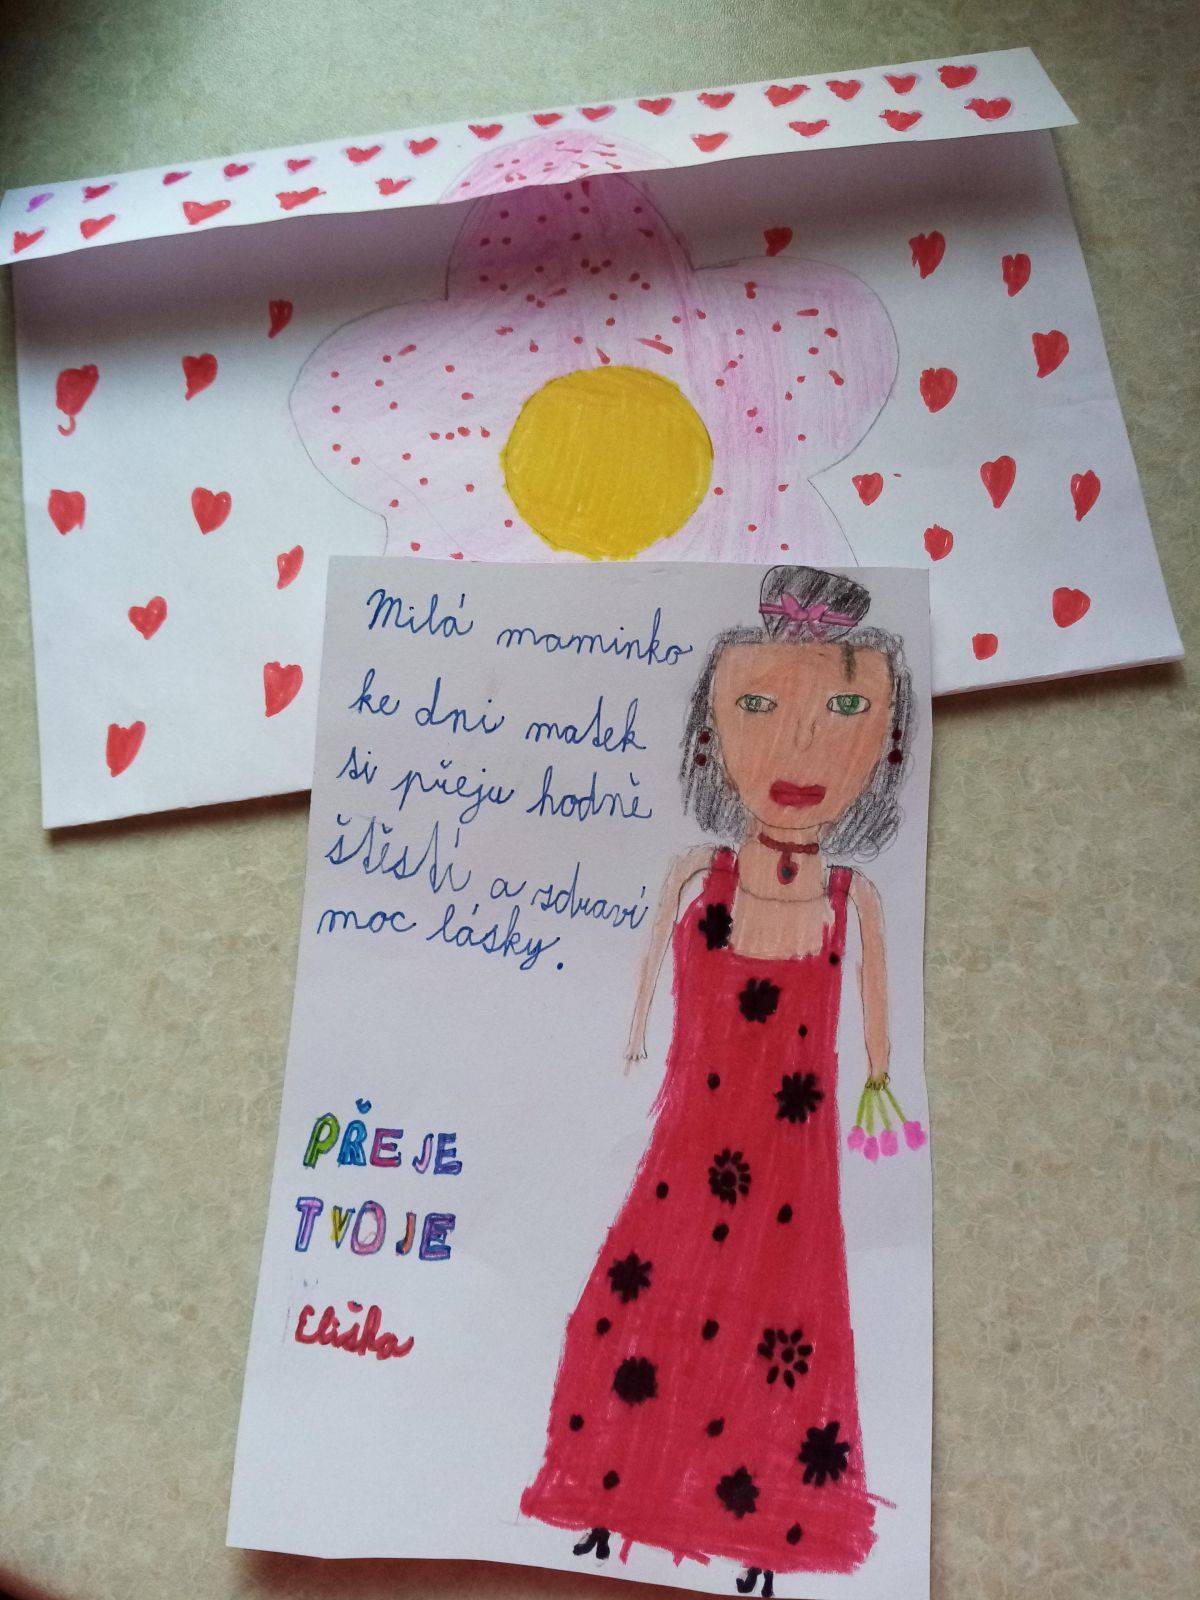 Milá maminko
ke dni matek
si přeju hodně
štěstí a zdraví
moc lásky.
PŘEJE
TVOJE
Eliška